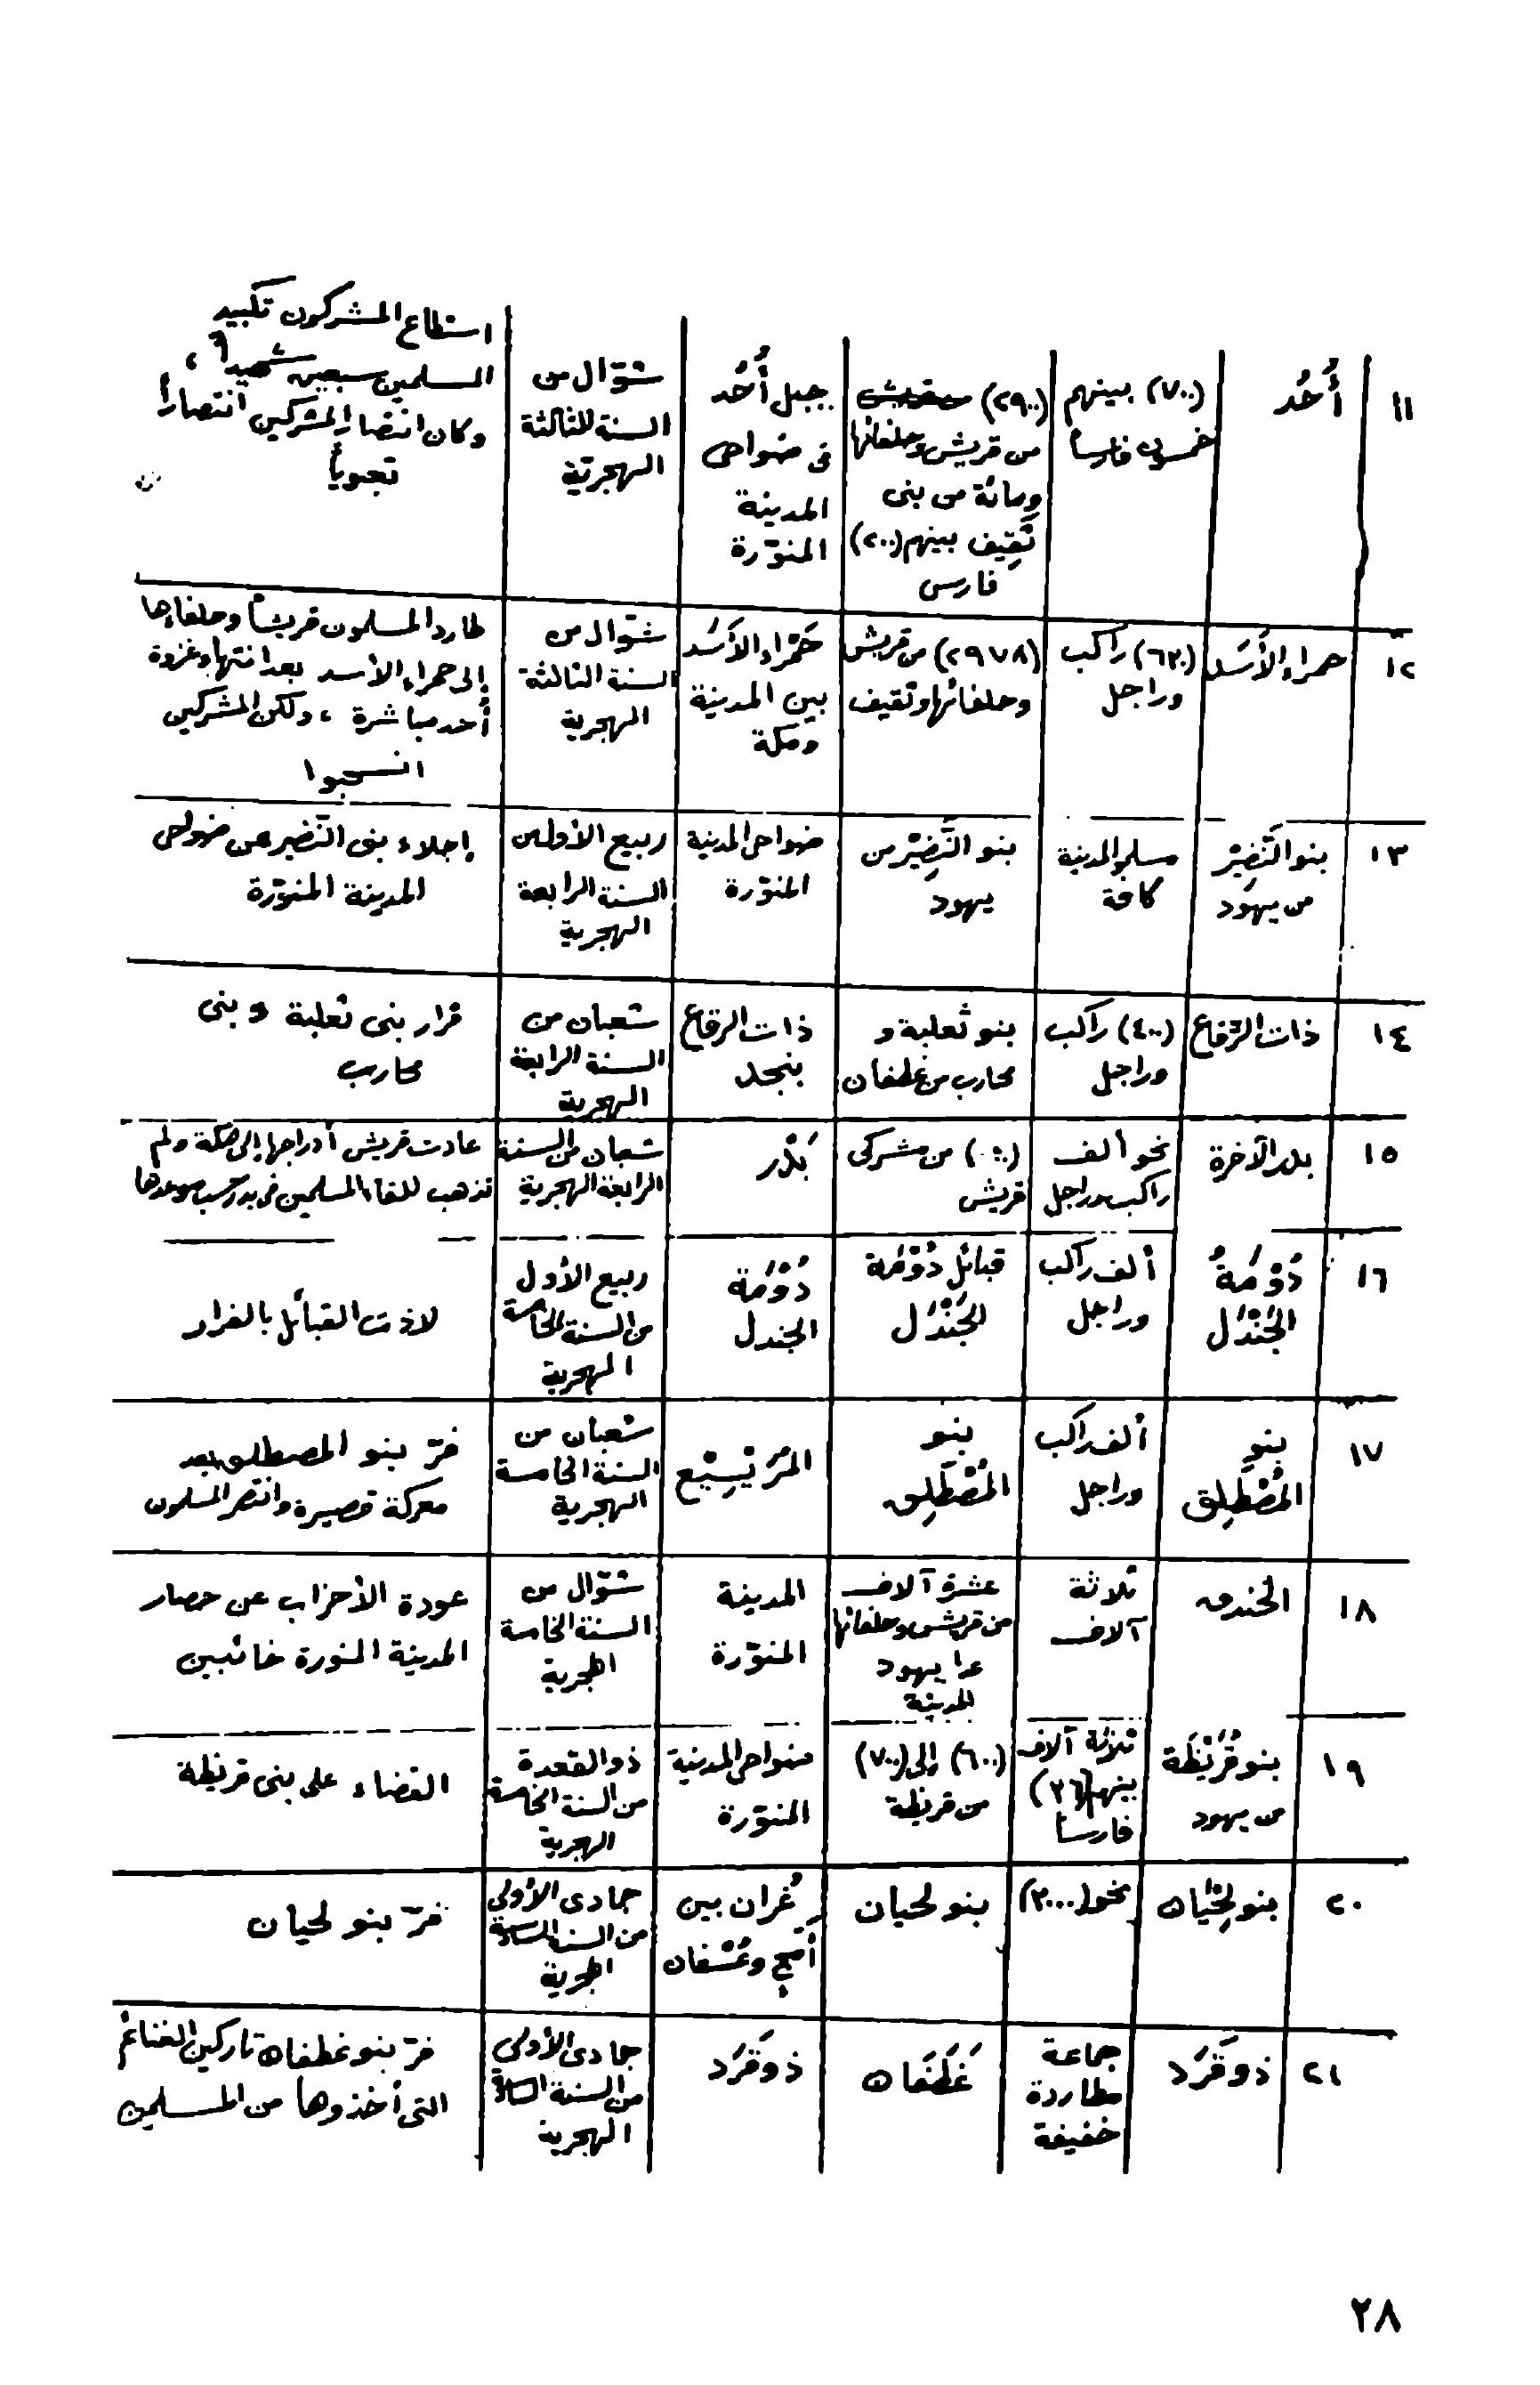 ١١
أُحُد
(٧٠٠) بينهم
خمسون فارساً
(٢٩٠٠)
من قريش وحلفائها
ومائة من بنى
ثَقِيف بينهم (٢٠٠)
فارس
جبل أُحُد
فى ضواحى
المدينة
المنوّرة
شوّال من
السنة الثالثة
الهجريّة
استطاع المشركون تكبيد
المسلمين سبعين شهيداً ،
وكان انتصار المشركين انتصاراً
تعبوياً
١٢
حمراء الأَسَد
(٦٣٠) راكب
وراجل
(٢٩٧٨) من قريش
وحلفائها وثقيف
حَمْراء الأَسَد
بين المدينة
ومكة
شوّال من
السنة الثالثة
الهجرية
طارد المسلمون قريشاً وحلفاءها
إلى حمراء الأسد بعد انتهاء غزوة
أُحد مباشرة ، ولكن المشركين
انسحبوا
١٣
بنو النَّضِيْر
من يهود
مسلمو المدينة
كافة
بنو النَّضِيْر من
يهود
ضواحى المدينة
المنوّرة
ربيع الأول من
السنة الرابعة
الهجرية
إجلاء بنى النّضير عن ضواحى
المدينة المنوّرة
١٤
ذات الرِّقاع
(٤٠٠) راكب
وراجل
بنو ثعلبة و
محارب من غطفان
ذات الرقاع
بنجد
شعبان من
السنة الرابعة
الهجرية
فرار بنى ثعلبة و بنى
محارب
١٥
بدر الآخرة
نحو ألف
راكب وراجل
من مشركى
قريش
بَدْر
شعبان من السنة
الرابعة الهجرية
عادت قريش أدراجها إلى مكة ولم
تذهب للقاء المسلمين فى بدر حسب موعدها
١٦
دُوْمَةُ
الجَنْدَل
ألف راكب
وراجل
قبائل دُوْمَة
الجَنْدَل
دُوْمَة
الجندل
ربيع الأول
من السنة الخامسة
الهجرية
لاذت القبائل بالفرار
١٧
بنو
المُصْطَلِق
ألف راكب
وراجل
بنو
المُصْطَلِق
المُرَيْسِيْع
شعبان من
السنة الخامسة
الهجرية
فرّ بنو المصطلق بعد
معركة قصيرة وانتصر المسلمون
١٨
الخندق
ثلاثة
آلاف
عشرة آلاف
من قريش وحلفائها
عدا يهود
المدينة
المدينة
المنوّرة
شوّال من
السنة الخامسة
الهجرية
عودة الأحزاب عن حصار
المدينة المنورة خائبين
١٩
بنو قُرَيْظَة
من يهود
ثلاثة آلاف
بينهم (٣٦)
فارساً
(٦٠٠) إلى (٧٠٠)
من قريظة
ضواحى المدينة
المنوّرة
ذو القعدة
من السنة الخامسة
الهجرية
القضاء على بنى قريظة
٢٠
بنو لِحْيان
نحو (٣٠٠٠)
بنو لحيان
غُران بين
أَمَج وعُسْفان
جمادى الأولى
من السنة السادسة
الهجرية
فرّ بنو لحيان
٢١
ذو قَرَد
جماعة
مطاردة
خفيفة
غَطَفَان
ذو قَرَد
جمادى الأولى
من السنة السادسة
الهجرية
فرّ بنو غطفان تاركين الغنائم
التى أخذوها من المسلمين
٢٨